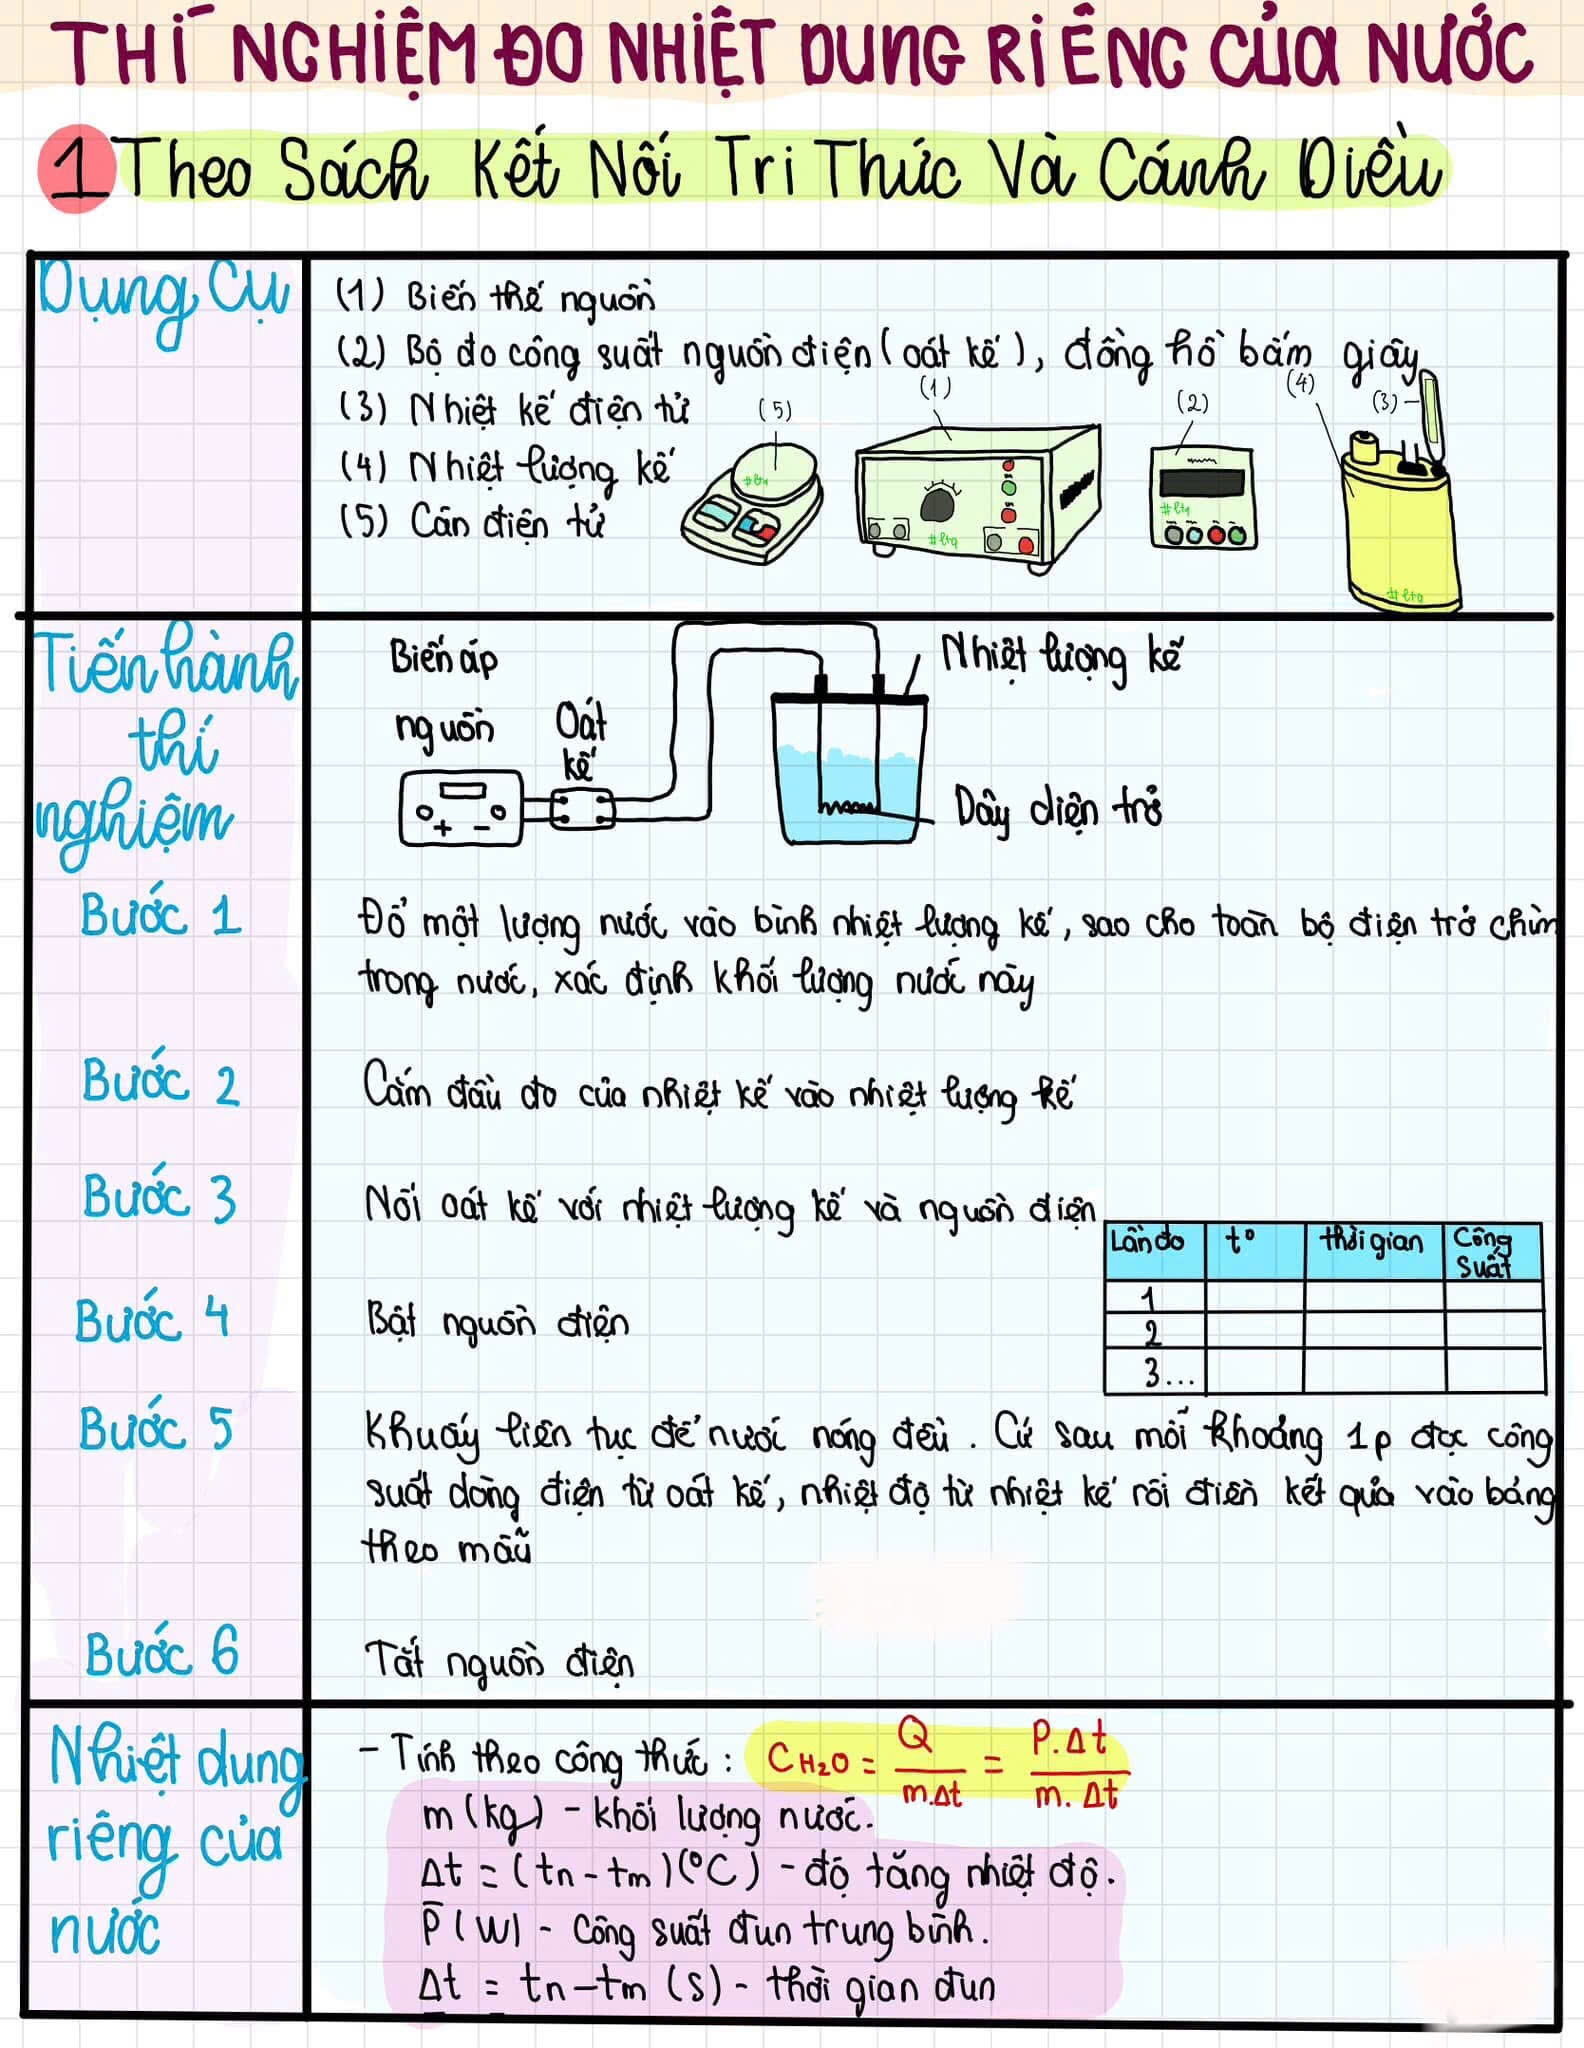 THÍ NGHIỆM ĐO NHIỆT DUNG RIÊNG CỦA NƯỚC
1 Theo Sách Kết Nối Tri Thức Và Cánh Diều
Dụng Cụ
(1) Biến thế nguồn
(2) Bộ đo công suất nguồn điện (oát kế), đồng hồ bấm giây
(3) Nhiệt kế điện tử
(4) Nhiệt lượng kế
(5) Cân điện tử
(5)
(1)
(2)
(4)
(3)
#ltq
#ltq
#ltq
#ltq
Tiến hành
thí
nghiệm
Biến áp
nguồn
Oát
kế
Nhiệt lượng kế
Dây điện trở
+ −
Bước 1
Đổ một lượng nước vào bình nhiệt lượng kế, sao cho toàn bộ điện trở chìm
trong nước, xác định khối lượng nước này
Bước 2
Cắm đầu đo của nhiệt kế vào nhiệt lượng kế
Bước 3
Nối oát kế với nhiệt lượng kế và nguồn điện
Lần đo t° thời gian Công suất
1
2
3...
Bước 4
Bật nguồn điện
Bước 5
Khuấy liên tục để nước nóng đều. Cứ sau mỗi khoảng 1p đọc công
suất dòng điện từ oát kế, nhiệt độ từ nhiệt kế rồi điền kết quả vào bảng
theo mẫu
Bước 6
Tắt nguồn điện
Nhiệt dung
riêng của
nước
- Tính theo công thức: C H₂O = Q / m.Δt = P.Δt / m.Δt
m (kg) - khối lượng nước.
Δt = (tn - tm) (°C) - độ tăng nhiệt độ.
P̅ (W) - Công suất đun trung bình.
Δt = tn - tm (s) - thời gian đun